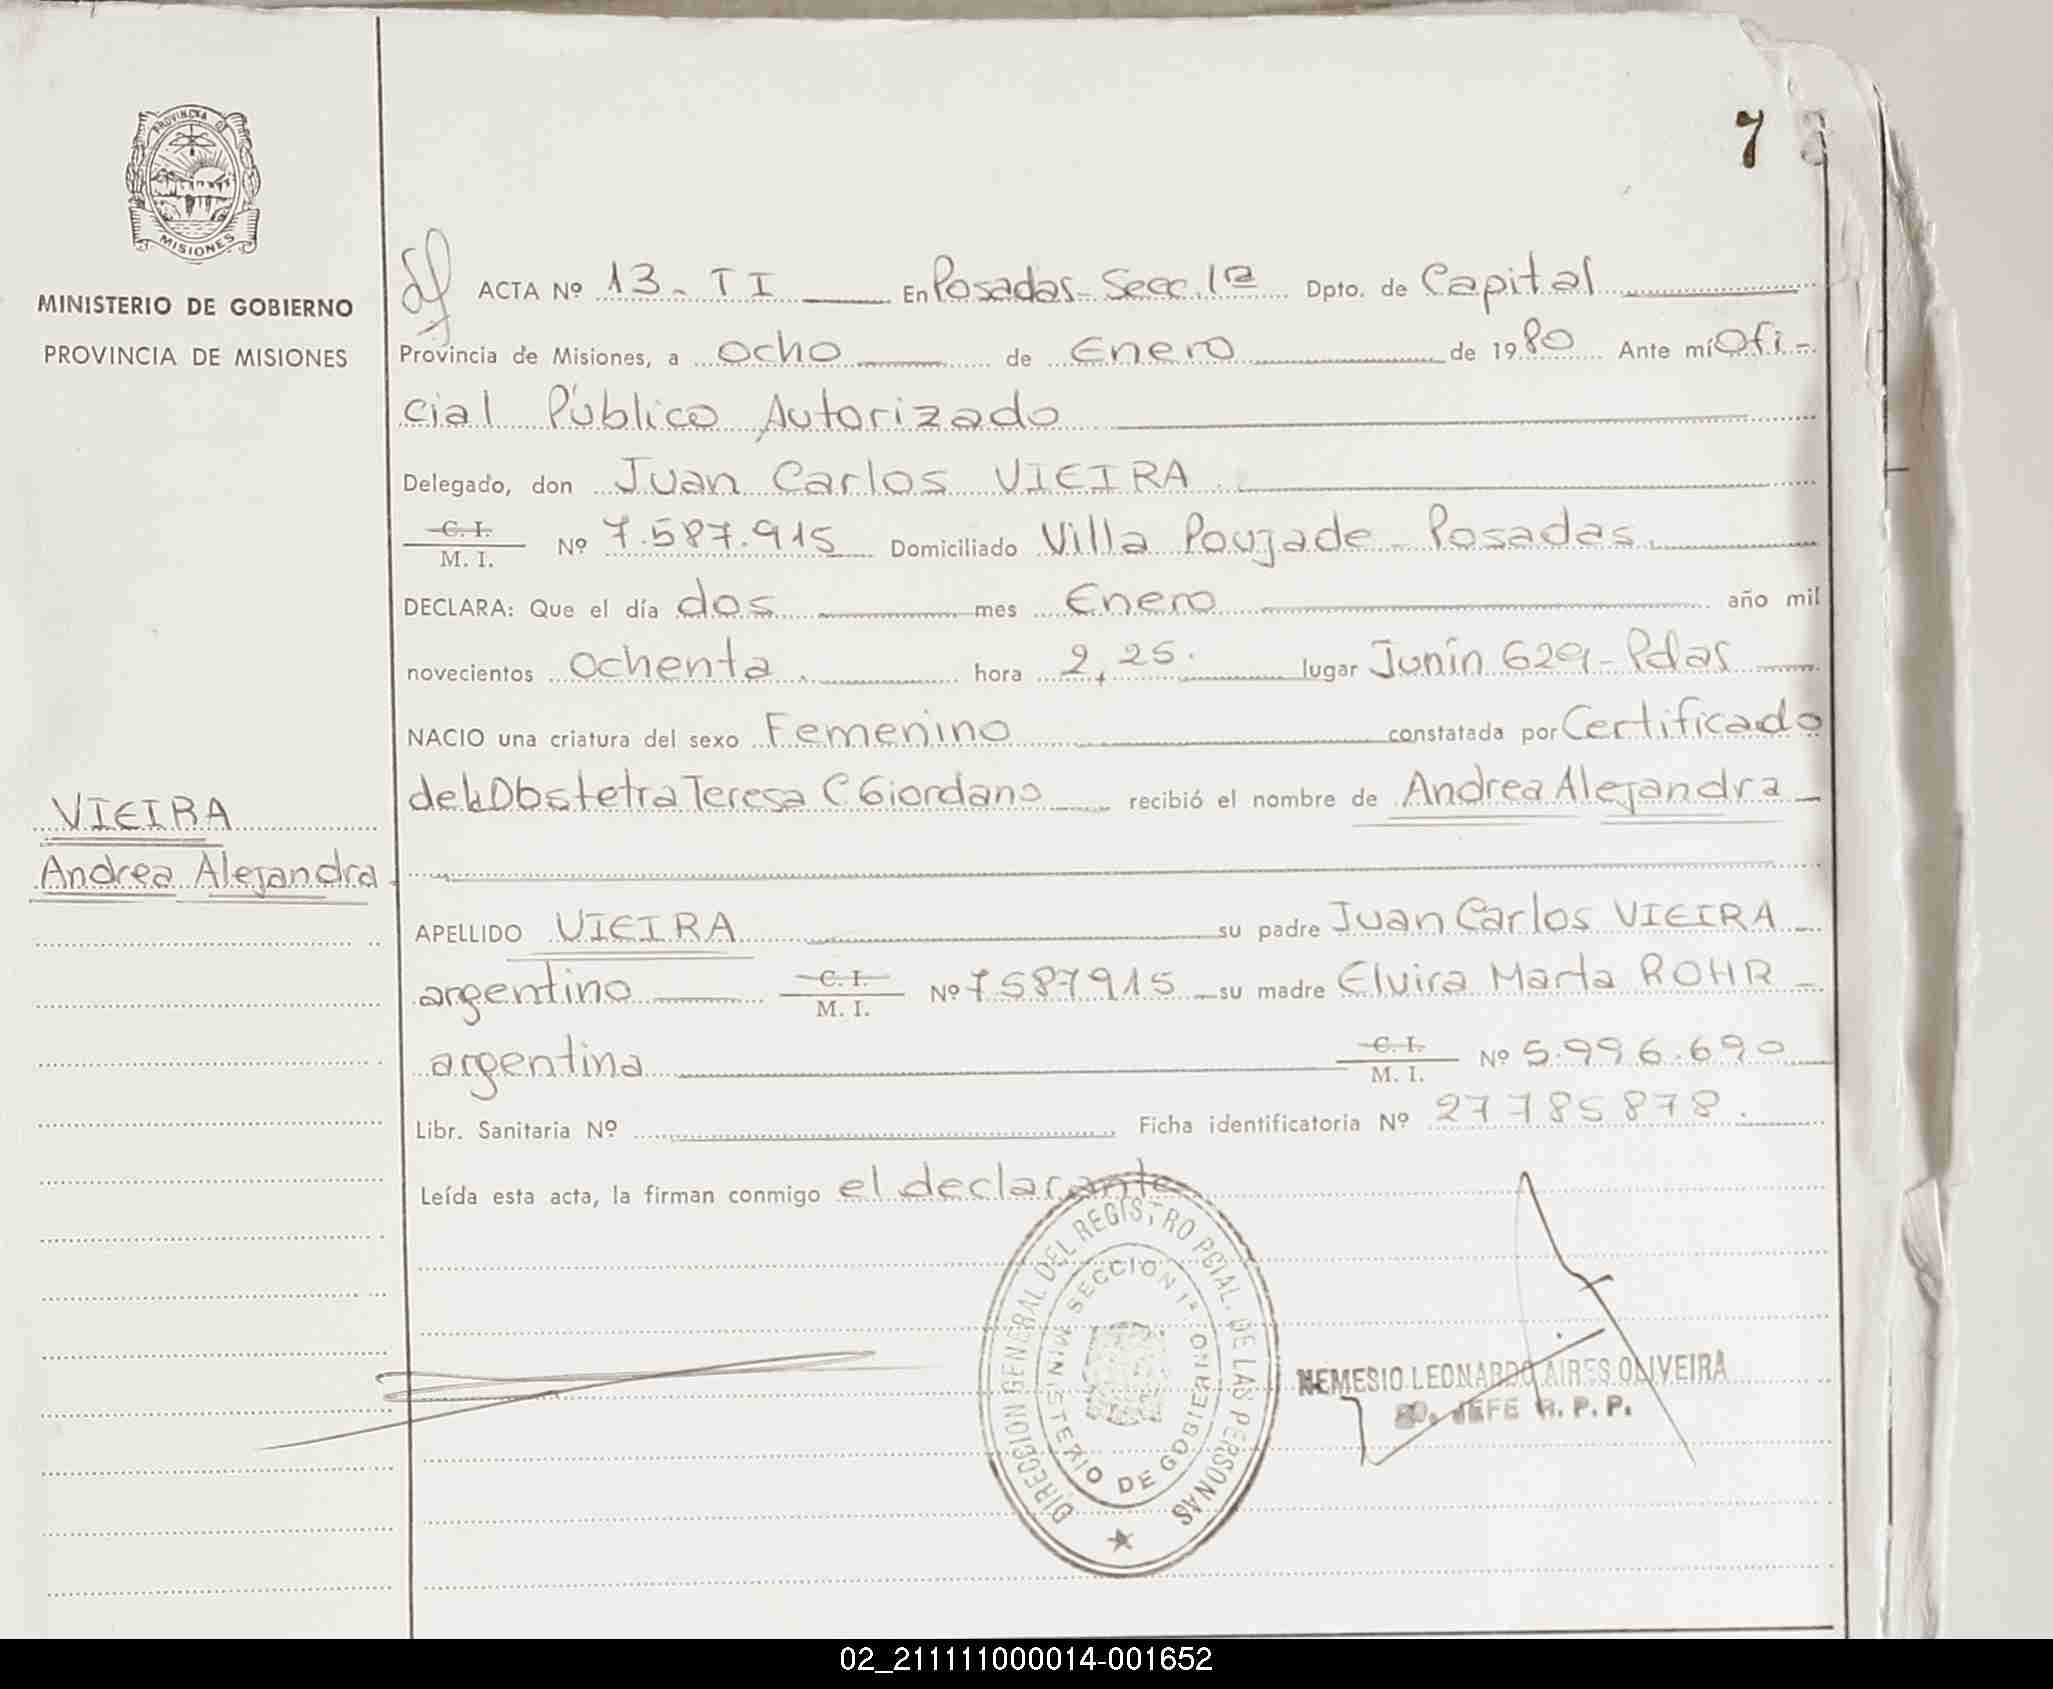 PROVINCIA DE
MISIONES
MINISTERIO DE GOBIERNO
PROVINCIA DE MISIONES
VIEIRA
Andrea Alejandra
7
ACTA Nº 13 - T I En Posadas - Secc. 1ª Dpto. de Capital
Provincia de Misiones, a ocho de Enero de 1980 Ante mí Ofi-
cial Público Autorizado
Delegado, don Juan Carlos VIEIRA
C. I.
M. I. Nº 7.587.915 Domiciliado Villa Poujade - Posadas
DECLARA: Que el día dos mes Enero año mil
novecientos ochenta hora 2,25. lugar Junín 629 - Pdas
NACIO una criatura del sexo Femenino constatada por Certificado
de Obstetra Teresa C Giordano recibió el nombre de Andrea Alejandra
APELLIDO VIEIRA su padre Juan Carlos VIEIRA
argentino C. I. M. I. Nº 7587915 su madre Elvira Marta ROHR
argentina C. I. M. I. Nº 5.996.690
Libr. Sanitaria Nº Ficha identificatoria Nº 27785878.
Leída esta acta, la firman conmigo el declarante
DIRECCION GENERAL DEL REGISTRO PCIAL. DE LAS PERSONAS
SECCION 1ª
MINISTERIO DE GOBIERNO
NEMESIO LEONARDO AIRES OLIVEIRA
JEFE R. P. P.
02_211111000014-001652